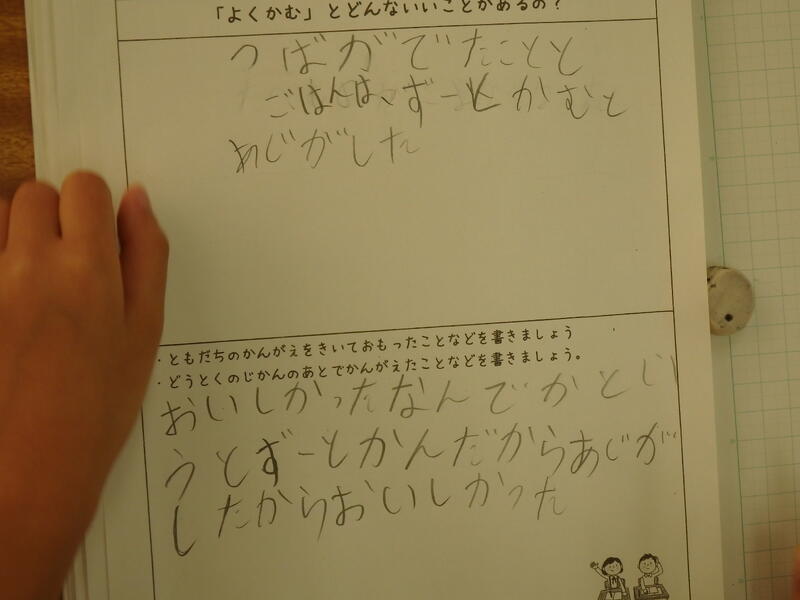 「よくかむ」とどんないいことがあるの？
つばがでたことと
ごはんは、ずーとかむと
あじがした
・ともだちのかんがえをきいておもったことなどを書きましょう
・どうとくのじかんのあとでかんがえたことなどを書きましょう。
おいしかったなんでかとい
うとずーとかんだからあじが
したからおいしかった